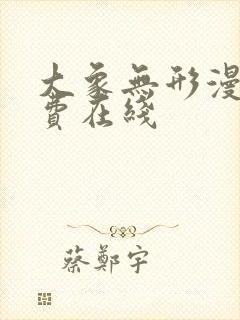 大象無形漫
費在綫
蔡鄭宇